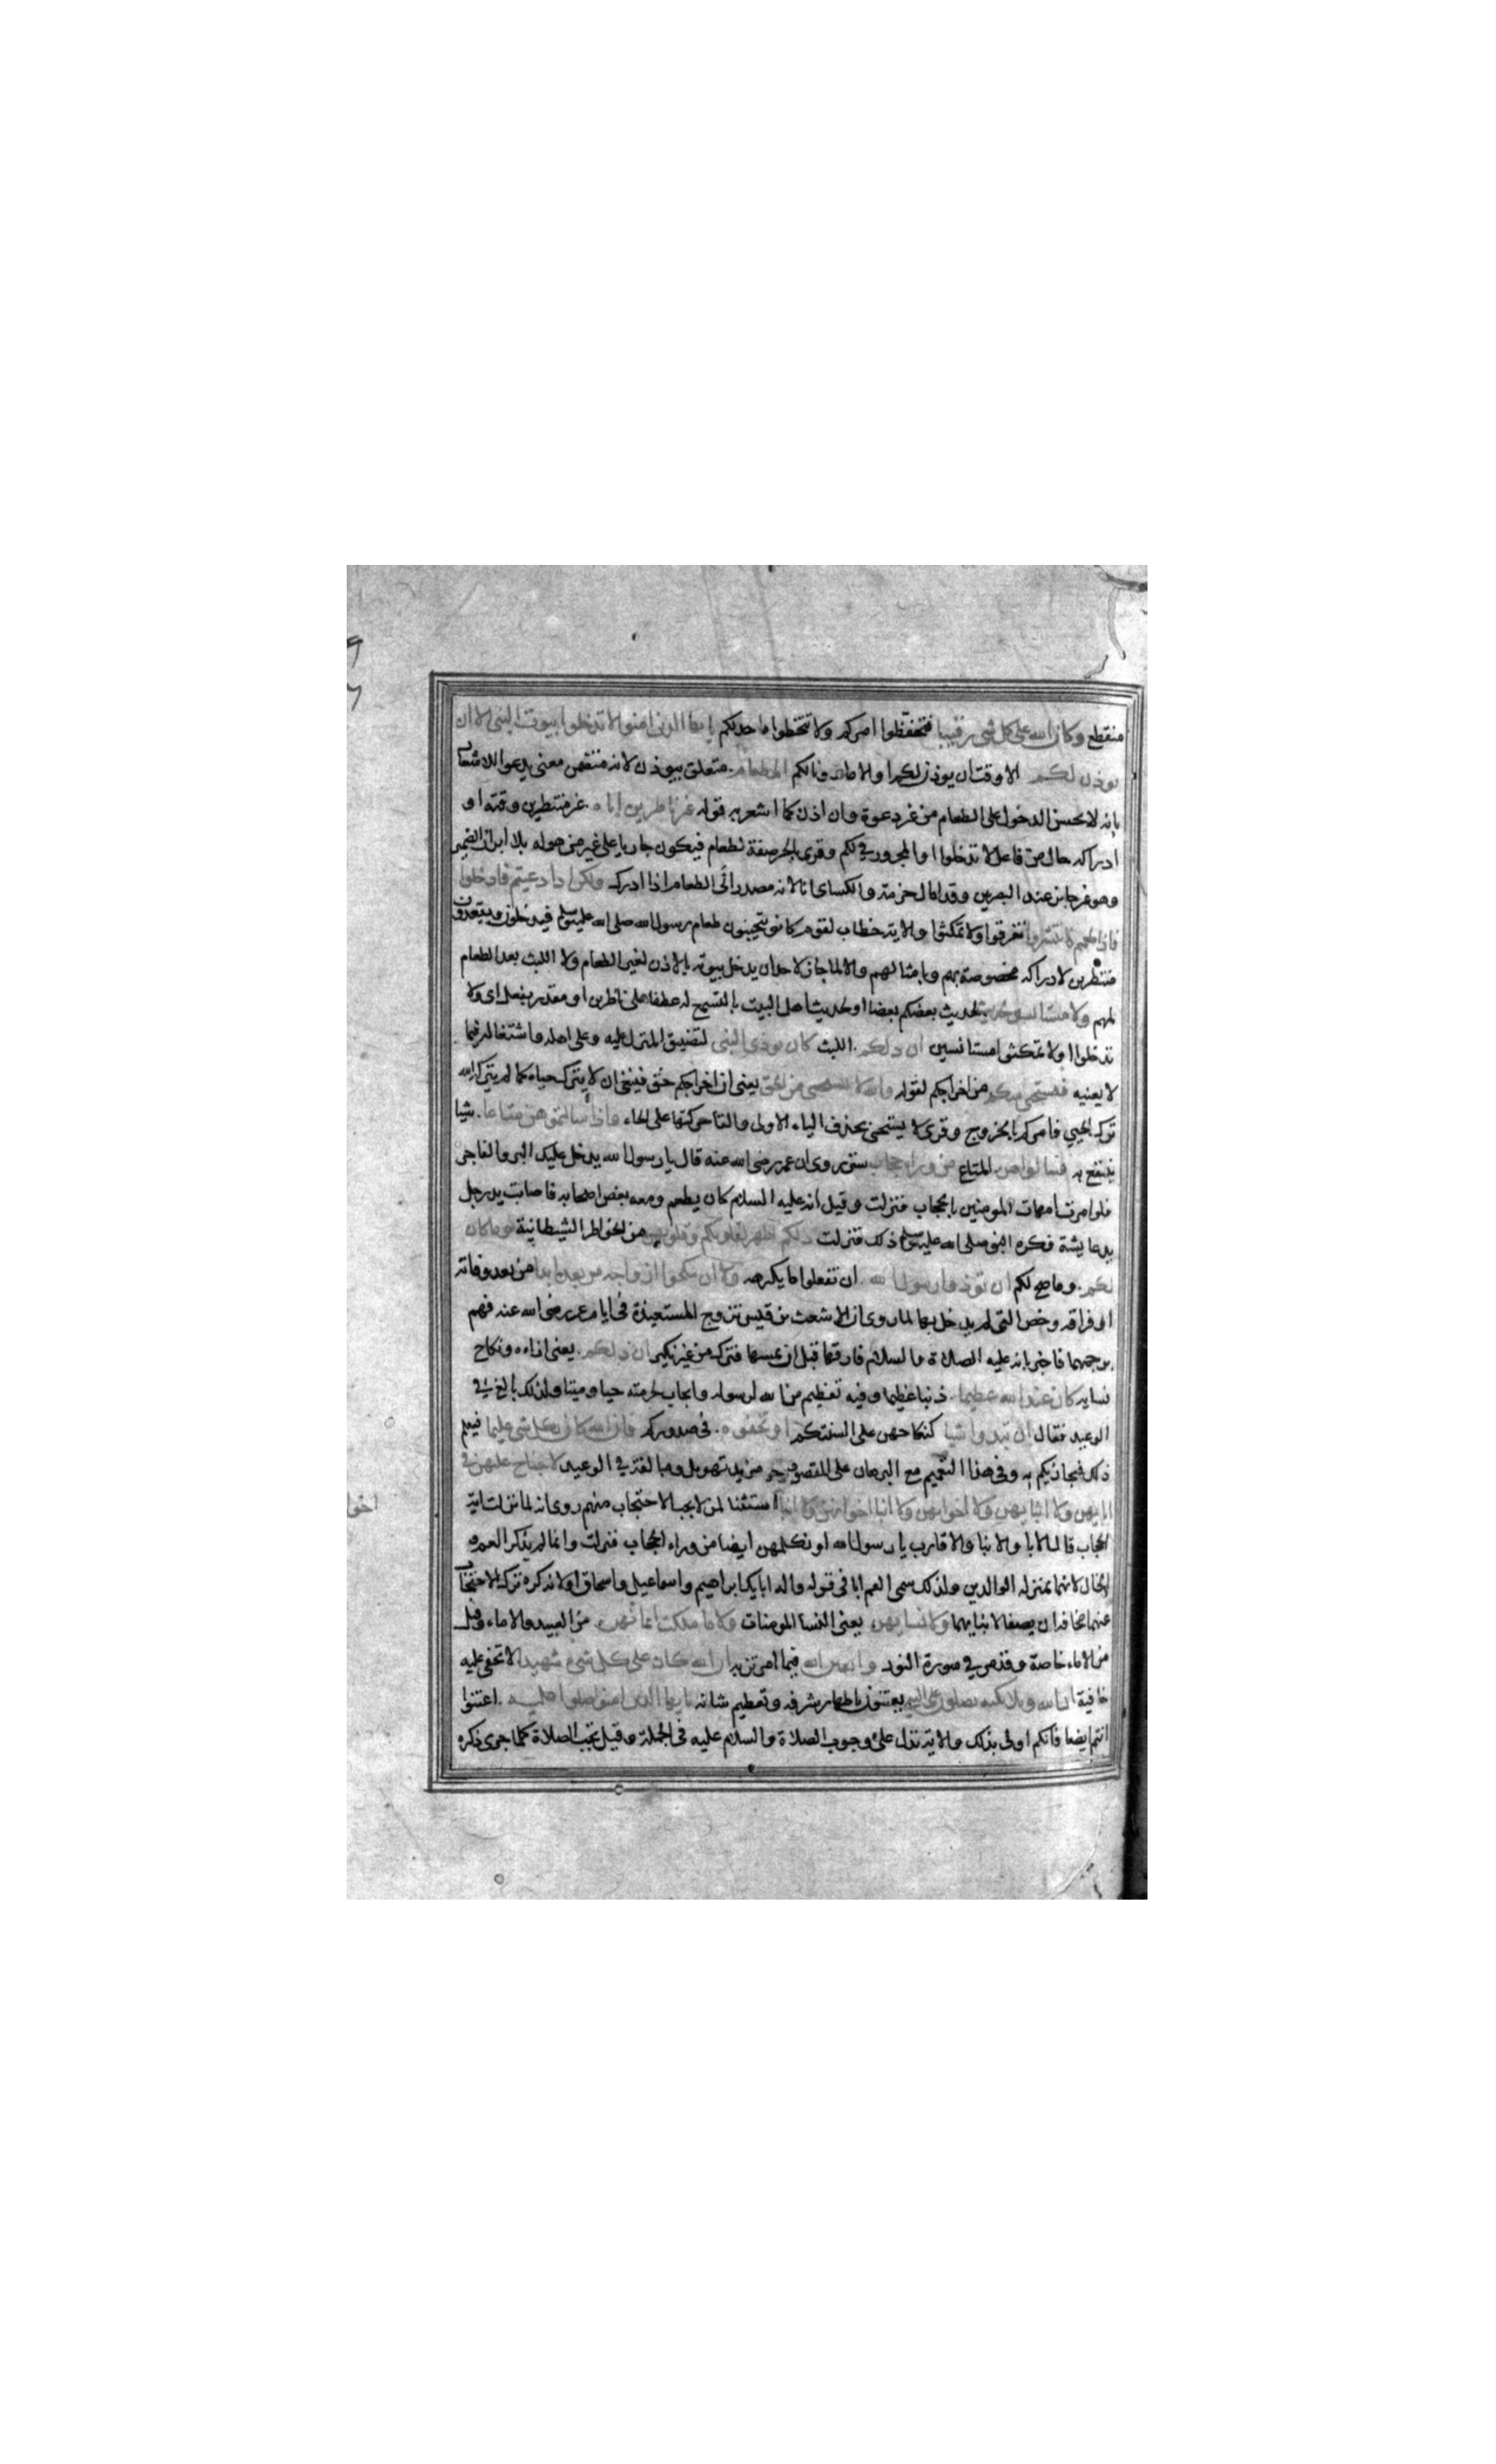 منقطع وكان الله على كل شي رقيبا فتحفظوا امركم ولا تتخطوا ما حد لكم يا ايها الذين امنوا لا تدخلوا بيوت النبي الا ان
يوذن لكم الا وقت ان يوذن لكم او الا ماذونا لكم الى طعام متعلق بيوذن لانه متضمن معنى يدعوا للاشعار
بانه لا يحسن الدخول على الطعام من غير دعوة وان اذن كما اشعر به قوله غير ناظرين اناه غير منتظرين وقته او
ادراكه حال من فاعل لا تدخلوا او المجرور في لكم وقرى بالجر صفة لطعام فيكون جاريا على غير من هو له بلا ابراز الضمير
وهو غير جايز عند البصرين وقد امال حمزة والكساى انا لانه مصدر انى الطعام اذا ادرك ولكن اذا دعيتم فادخلوا
فاذا طعمتم فانتشروا تفرقوا ولا تمكثوا والاية خطاب لقوم كانوا يتحينون طعام رسول الله صلى الله عليه وسلم فيدخلون ويقعدون
منتظرين لادراكه مخصوصة بهم وبامثالهم والا لما جاز لاحد ان يدخل بيوته بالاذن لغير الطعام ولا اللبث بعد الطعام
لمهم ولا مستانسين لحديث لحديث بعضكم بعضا او لحديث اهل البيت بالتسمع له عطف على ناظرين او مقدر بفعل اى ولا
تدخلوا او لا تمكثوا مستانسين ان ذلكم اللبث كان يوذى النبى لتضيق المنزل عليه وعلى اهله واشتغاله فيما
لا يعنيه فيستحى منكم من اخراجكم لقوله والله لا يستحيى من الحق يعنى ان اخراجكم حق فينبغى ان لا يترك حياء كما لم يتركه الله
ترك الحيى فامركم بالخروج وقرى لا يستحى بحذف الياء الاولى والقا حركتها على الحاء واذا سالتموهن متاعا شيا
ينتفع به فسالوهن المتاع من وراء حجاب ستر روى ان عمر رضى الله عنه قال يا رسول الله يدخل عليك البر والفاجر
فلو امرت امهات المومنين بالحجاب فنزلت وقيل انه عليه السلام كان يطعم ومعه بعض اصحابه فاصابت يد رجل
يد عايشة فكره النبى صلى الله عليه وسلم ذلك فنزلت ذلكم اطهر لقلوبكم وقلوبهن من الخواطر الشيطانية وما كان
لكم وما صح لكم ان توذوا رسول الله ان تفعلوا ما يكرهه ولا ان تنكحوا ازواجه من بعده ابدا من بعد وفاته
او فراقه وخص التى لم يدخل بها لما روى ان الاشعث بن قيس تزوج المستعيذة فى ايام عمر رضى الله عنه فهم
برجمهما فاخبر بانه عليه الصلاة والسلام فارقها قبل ان يمسها فترك من غير نكير ان ذلكم يعنى اذاه ونكاح
نسايه كان عند الله عظيما ذنبا عظيما وفيه تعظيم من الله لرسوله وايجاب لحرمته حيا وميتا ولذلك بالغ فى
الوعيد فقال ان تبدوا شيا كنكاحهن على السنتكم او تخفوه فى صدوركم فان الله كان بكل شى عليما فيعلم
ذلك فيجازيكم به وفى هذا التعميم مع البرهان على المقصود مزيد تهويل ومبالغة فى الوعيد لا جناح عليهن فى
ابايهن ولا ابنايهن ولا اخوانهن ولا ابنا اخوانهن ولا ابنا استثنا لمن لا يجب الاحتجاب منهم روى انه لما نزلت اية
الحجاب قال الابا والابنا والاقارب يا رسول الله او نكلمهن ايضا من وراء الحجاب فنزلت وانما لم يذكر العم و
الخال لانهما بمنزلة الوالدين ولذلك سمى العم ابا فى قوله واله ابايك ابراهيم واسماعيل واسحاق او لانه كره ترك الاحتجاب
عنهما مخافة ان يصفا لابنايهما ولا نسايهن يعنى النسا المومنات ولا ما ملكت ايمانهن من العبيد والاماء وقيل
من الاماء خاصة وقد مر فى سورة النور واتقين الله فيما امرتن به ان الله كان على كل شى شهيدا لا تخفى عليه
خافية ان الله وملائكته يصلون على النبى يعتنون باظهار شرفه وتعظيم شانه يا ايها الذين امنوا صلوا عليه اعتنوا
انتم ايضا فانكم اولى بذلك والاية تدل على وجوب الصلاة والسلام عليه فى الجملة وقيل تجب الصلاة كلما جرى ذكره